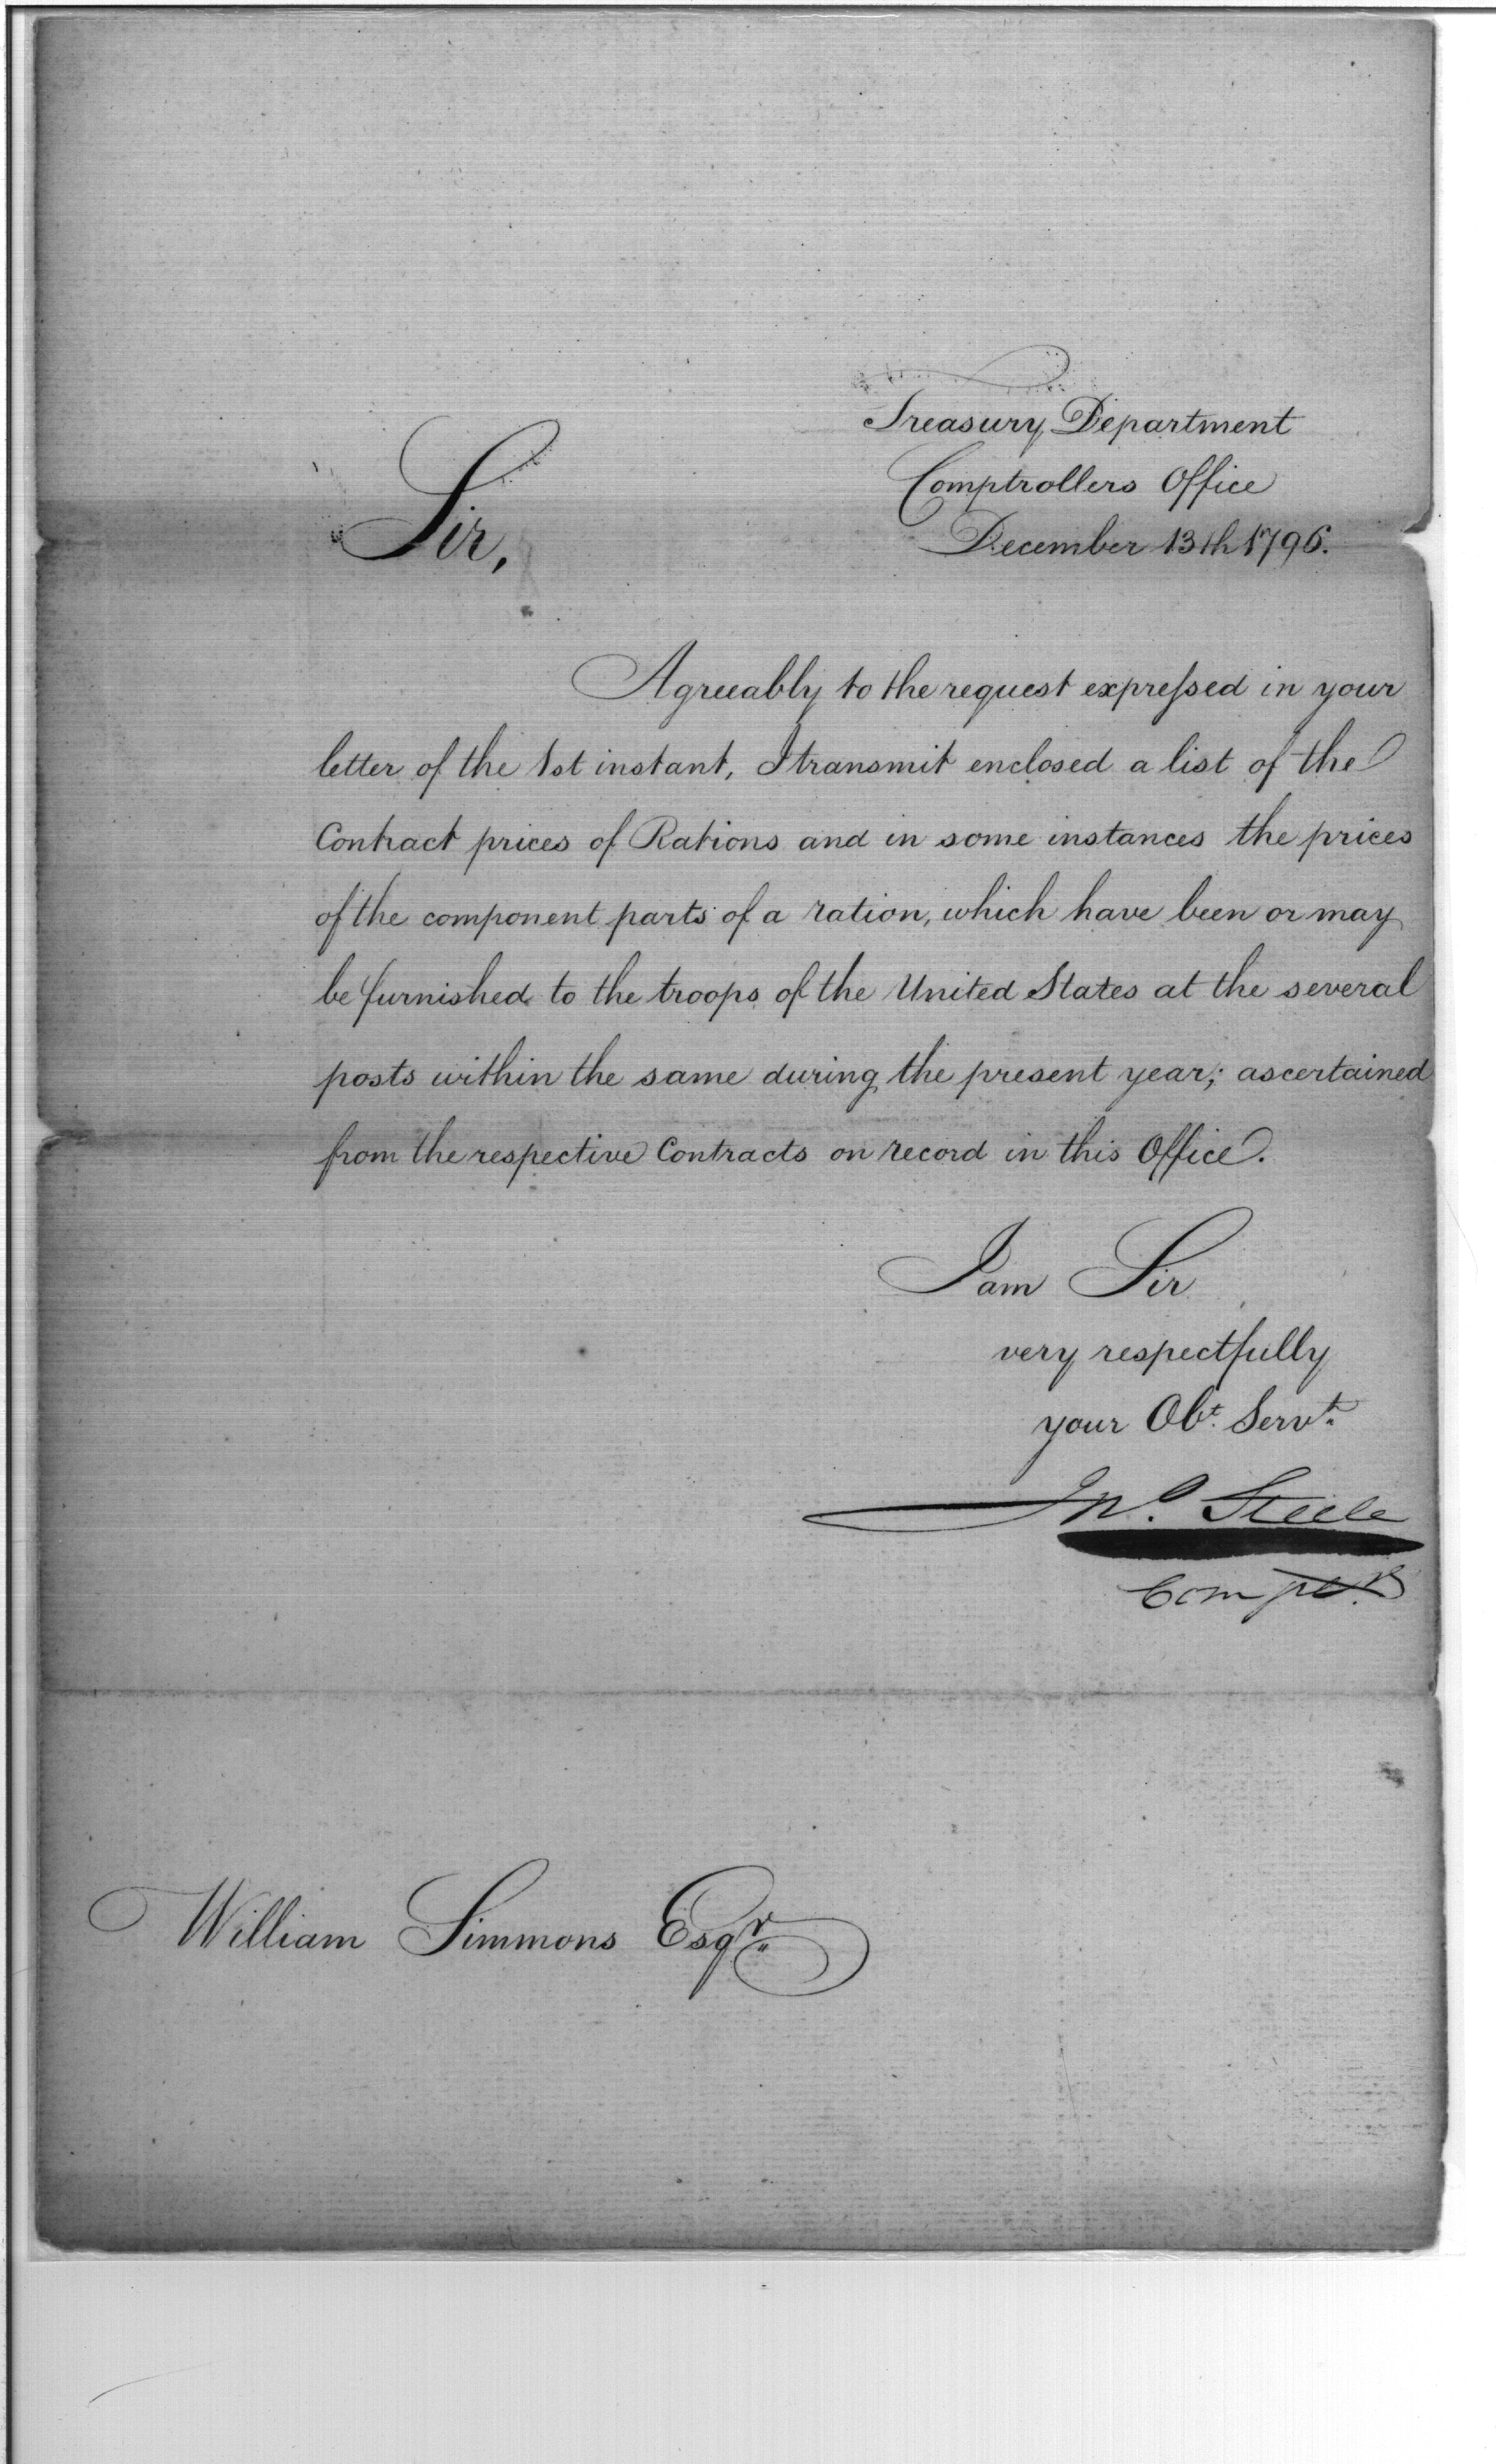 Treasury Department
Comptrollers Office
December 13th 1796.
Sir,
Agreeably to the request expreſsed in your
letter of the 1st instant, I transmit enclosed a list of the
Contract prices of Rations and in some instances the prices
of the component parts of a ration, which have been or may
be furnished to the troops of the United States at the several
posts within the same during the present year; ascertained
from the respective Contracts on record in this Office.
I am Sir
very respectfully
your Obt. Servt.
Jno. Steele
Compr.
William Simmons Esqr.